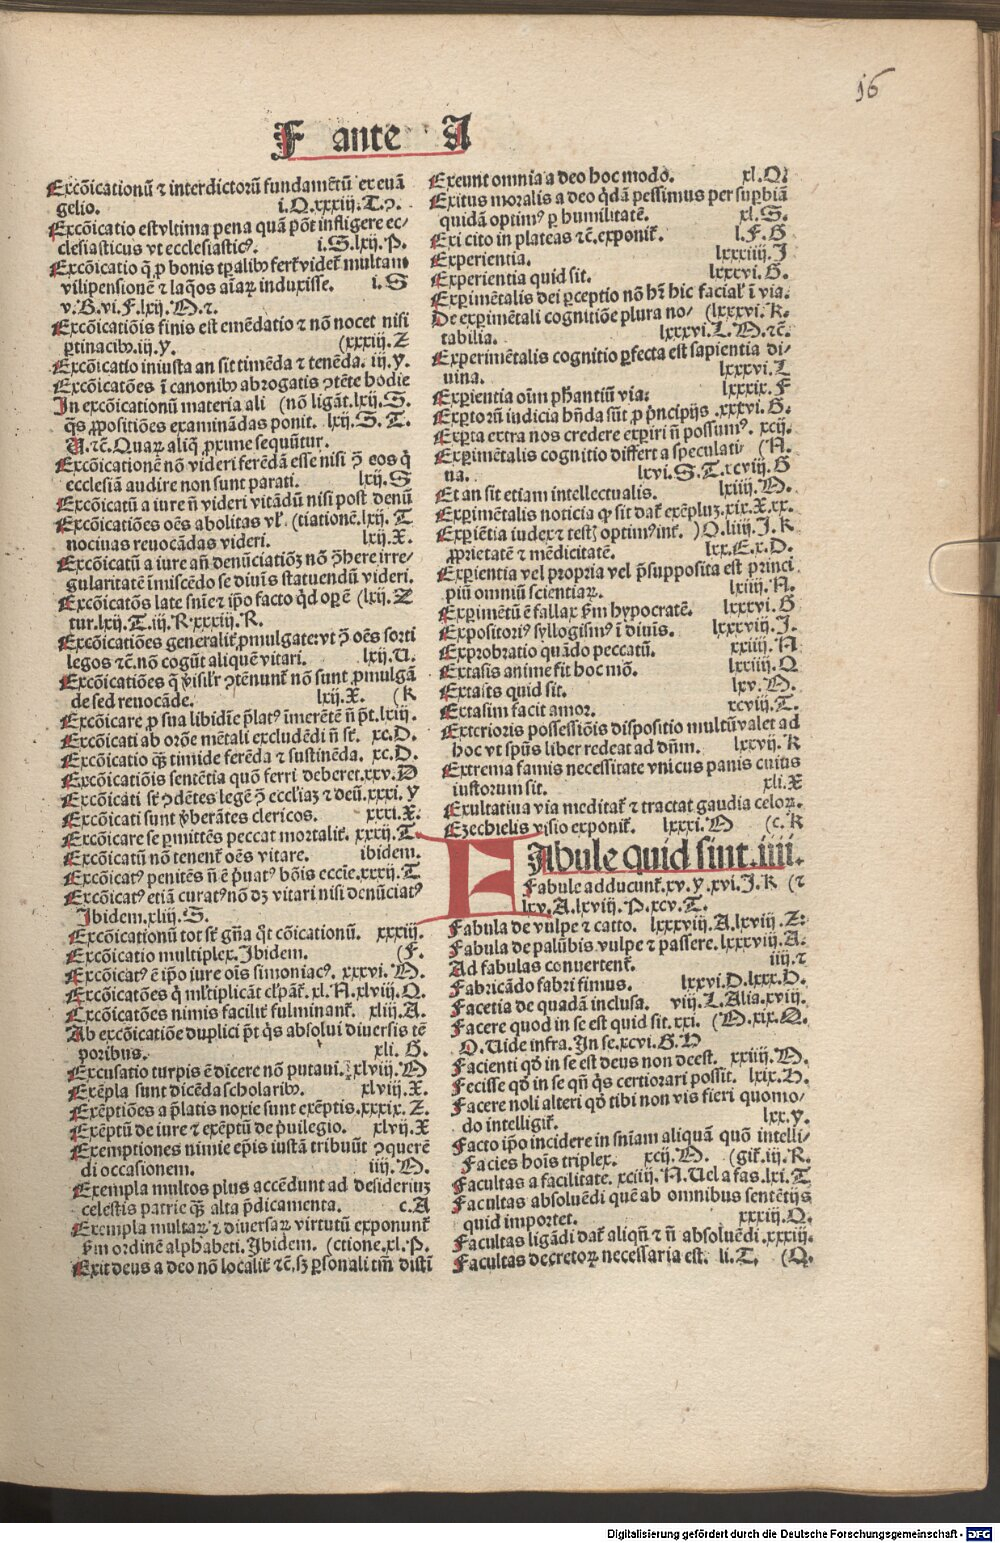 16
F ante A
Excōicationū ⁊ interdictorū fundamētū ex euā
gelio. i.Q.xxxiij.T.ꝛ.
Excōicatio est vltima pena quā pōt infligere ec⸗
clesiasticus vt ecclesiasticꝰ. i.S.lxij.P.
Excōicatio q̄ ꝓ bonis tꝑalibꝰ fert᷑ videt᷑ multam
vilipensionē ⁊ laq̄os aīaꝝ induxisse. i.S
v.B.vi.F.lxij.M.⁊.
Excōicatiōis finis est emēdatio ⁊ nō nocet nisi
ꝑtinacibꝰ.iij.y. (xxxiij.Z
Excōicatio iniusta an sit timēda ⁊ tenēda. iij.y.
Excōicatōes ī canonibꝰ abrogatis ꝯtēte hodie
In excōicationū materia ali (nō ligāt.lxij.S.
q̄s ꝓpositiōes examinādas ponit. lxij.S. T.
U.⁊c̄.Quaꝝ aliq̄ ꝓxime sequūtur.
Excōicationē nō videri ferēdā esse nisi ꝯ̄ eos q̄
ecclesiā audire non sunt parati. lxij.S
Excōicatū a iure n̄ videri vitādū nisi post denū
Excōicatiōes oēs abolitas vl᷑ (tiationē.lxij. T
nociuas reuocādas videri. lxij.X.
Excōicatū a iure an̄ denūciatiōꝫ nō ꝯ̄here irre⸗
gularitatē īmiscēdo se diuīs statuendū videri.
Excōicatōs late snīe ⁊ ip̄o facto q̄d opꝰ ē (lxij. Z
tur.lxij.T.iij.R.xxxiij.R.
Excōicatiōes generalit᷑ ꝓmulgate: vt ꝯ̄ oēs sorti
legos ⁊c̄.nō cogūt aliquē vitari. lxij.U.
Excōicatiōes q̄ ꝟisil᷑r ꝯtēnunt᷑ nō sunt ꝓmulgā
de sed reuocāde. lxij.X. (K
Excōicare ꝓ sua libidīe p̄latꝰ īmerētē n̄ p̄t.lxiij.
Excōicati ab orōe mētali excludēdi n̄ st᷑. xc.D.
Excōicatiōes q̄ꝫ timide ferēda ⁊ sustinēda. xc.D.
Excōicatiōis sentētia quō ferri deberet.xxv.D
Excōicati st᷑ ꝯdētes legē ꝯ̄ eccl'iaꝫ ⁊ deū.xxxi.y
Excōicati sunt ꝟberātes clericos. xxxi.X.
Excōicare se ꝑmittēs peccat mortalit᷑. xxxij.T.
Excōicatū nō tenent᷑ oēs vitare. ibidem.
Excōicatꝰ penitēs n̄ ē p̄uatꝰ bōis eccīe.xxxij.T
Excōicatꝰ etiā curatꝰ nō dꝫ vitari nisi denūciatꝰ
Ibidem.xliij.S.
Excōicationū tot st᷑ gn̄a q̄t cōicationū. xxxiij.
Excōicatio multiplex.Ibidem. (F.
Excōicatꝰ ē ip̄o iure oīs simoniacꝰ. xxxvi.M.
Excōicatōes q̄ ml'tiplicāt cl'pāt᷑. xl.N.xlviij.Q.
Excōicatōes nimis facilit᷑ fulminant᷑. xliij.A.
Ab excōicatiōe duplici p̄t q̄s absolui diuersis tē
poribus. xli. G.
Excusatio turpis ē dicere nō putaui. xlviij.M
Exēpla sunt dicēda scholaribꝰ. xlviij.X.
Exēptiōes a p̄latis noxie sunt exēptis.xxxix.Z.
Exēptū de iure ⁊ exēptū de p̄uilegio. xlvij.X
Exemptiones nimie ep̄is iustā tribuūt ꝯquerē
di occasionem. iiij.M.
Exempla multos plus accēdunt ad desideriuꝫ
celestis patrie q̄ꝫ alta p̄dicamenta. c.A
Exempla multaꝝ ⁊ diuersaꝝ virtutū exponunt᷑
ẜm ordinē alphabeti.Ibidem. (ctione.xl.P.
Exit deus a deo nō localit᷑ ⁊c̄.sꝫ ꝑsonali tm̄ disti
Exeunt omnia a deo hoc modo. xl.Q.
Exitus moralis a deo q̄dā pessimus per suꝑbiā
quidā optimꝰ ꝑ humilitatē. xl.S.
Exi cito in plateas ⁊c̄.exponit᷑. l.F.G
Experientia. lxxxiiij.J
Experientia quid sit. lxxxvi.G.
Exꝑimētalis dei ꝑceptio nō ht̄ hic facial᷑ ī via.
De exꝑimētali cognitiōe plura no⸗ (lxxxvi.K.
tabilia. lxxxvi.L.M.⁊c̄.
Experimētalis cognitio ꝑfecta est sapientia di⸗
uina. lxxxvi.L
Exꝑientia oīm phantiū via: lxxxix.F
Exꝑtorū iudicia hn̄da sūt ꝓ p̄ncipijs .xxxvi.G.
Exꝑta extra nos credere exꝑiri n̄ possumꝰ. xcij.
Exꝑimētalis cognitio differt a speculati (N.
na. lxvi.S.T.xcviij.G
Et an sit etiam intellectualis. lxiiij.M.
Exꝑimētalis noticia qͥ sit dat᷑ exēpluꝫ.xix.X.xx.
Exꝑiētia iudex ⁊ test᷑ optimꝰ int᷑. )O.liiij.J.K
ꝓprietatē ⁊ mēdicitatē. lxx.E.x.D.
Exꝑientia vel propria vel p̄supposita est princi
piū omniū scientiaꝝ. lxiiij.N.
Exꝑimētū ē fallax ẜm hypocratē. lxxxvi.G
Expositoriꝰ syllogismꝰ ī diuīs. lxxxviij.J.
Exprobratio quādo peccatū. xxiiij.N
Extasis anime fit hoc mō. lxxiiij.Q
Extasis quid sit. lxv.M.
Extasim facit amor. xcviij.T.
Exterioris possessiōis dispositio multū valet ad
hoc vt sp̄us liber redeat ad dn̄m. lxxvij.K
Extrema famis necessitate vnicus panis cuius
iustorum sit. xli.X
Exultatiua via meditat᷑ ⁊ tractat gaudia celoꝝ.
Ezechielis visio exponit᷑. lxxxi.M (c.K
FAbule quid sint.iiij.
Fabule adducunt᷑.xv.y.xvi.J.K (⁊
lxv.A.lxviij.P.xcv.T.
Fabula de vulpe ⁊ catto. lxxxviij.A.lxviij.Z:
Fabula de palūbis vulpe ⁊ passere.lxxxviij.A.
Ad fabulas conuertent᷑. iiij.⁊
Fabricādo fabri fimus. lxxvi.D.lxxx.D.
Facetia de quadā inclusa. viij.L.Alia.xviij.
Facere quod in se est quid sit.xxi. (M.xix.Q.
O.Uide infra.In se.xcvi.G.H
Facienti qd̄ in se est deus non deest. xxiiij.M.
Fecisse qd̄ in se qn̄ q̄s certiorari possit. lxix.H.
Facere noli alteri qd̄ tibi non vis fieri quomo⸗
do intelligit᷑. lxx.y.
Facto ip̄o incidere in snīam aliquā quō intelli⸗
Facies hoīs triplex. xcij.M. (git᷑.iij.R.
Facultas a facilitate. xciiij.N.Uel a fas.lxi.T
Facultas absoluēdi quē ab omnibus sentētijs
quid importet. xxxiij.O.
Facultas ligādi dat᷑ aliqn̄ ⁊ n̄ absoluēdi.xxxiij.
Facultas decretoꝝ necessaria est. li.T. (Q.
Digitalisierung gefördert durch die Deutsche Forschungsgemeinschaft - DFG